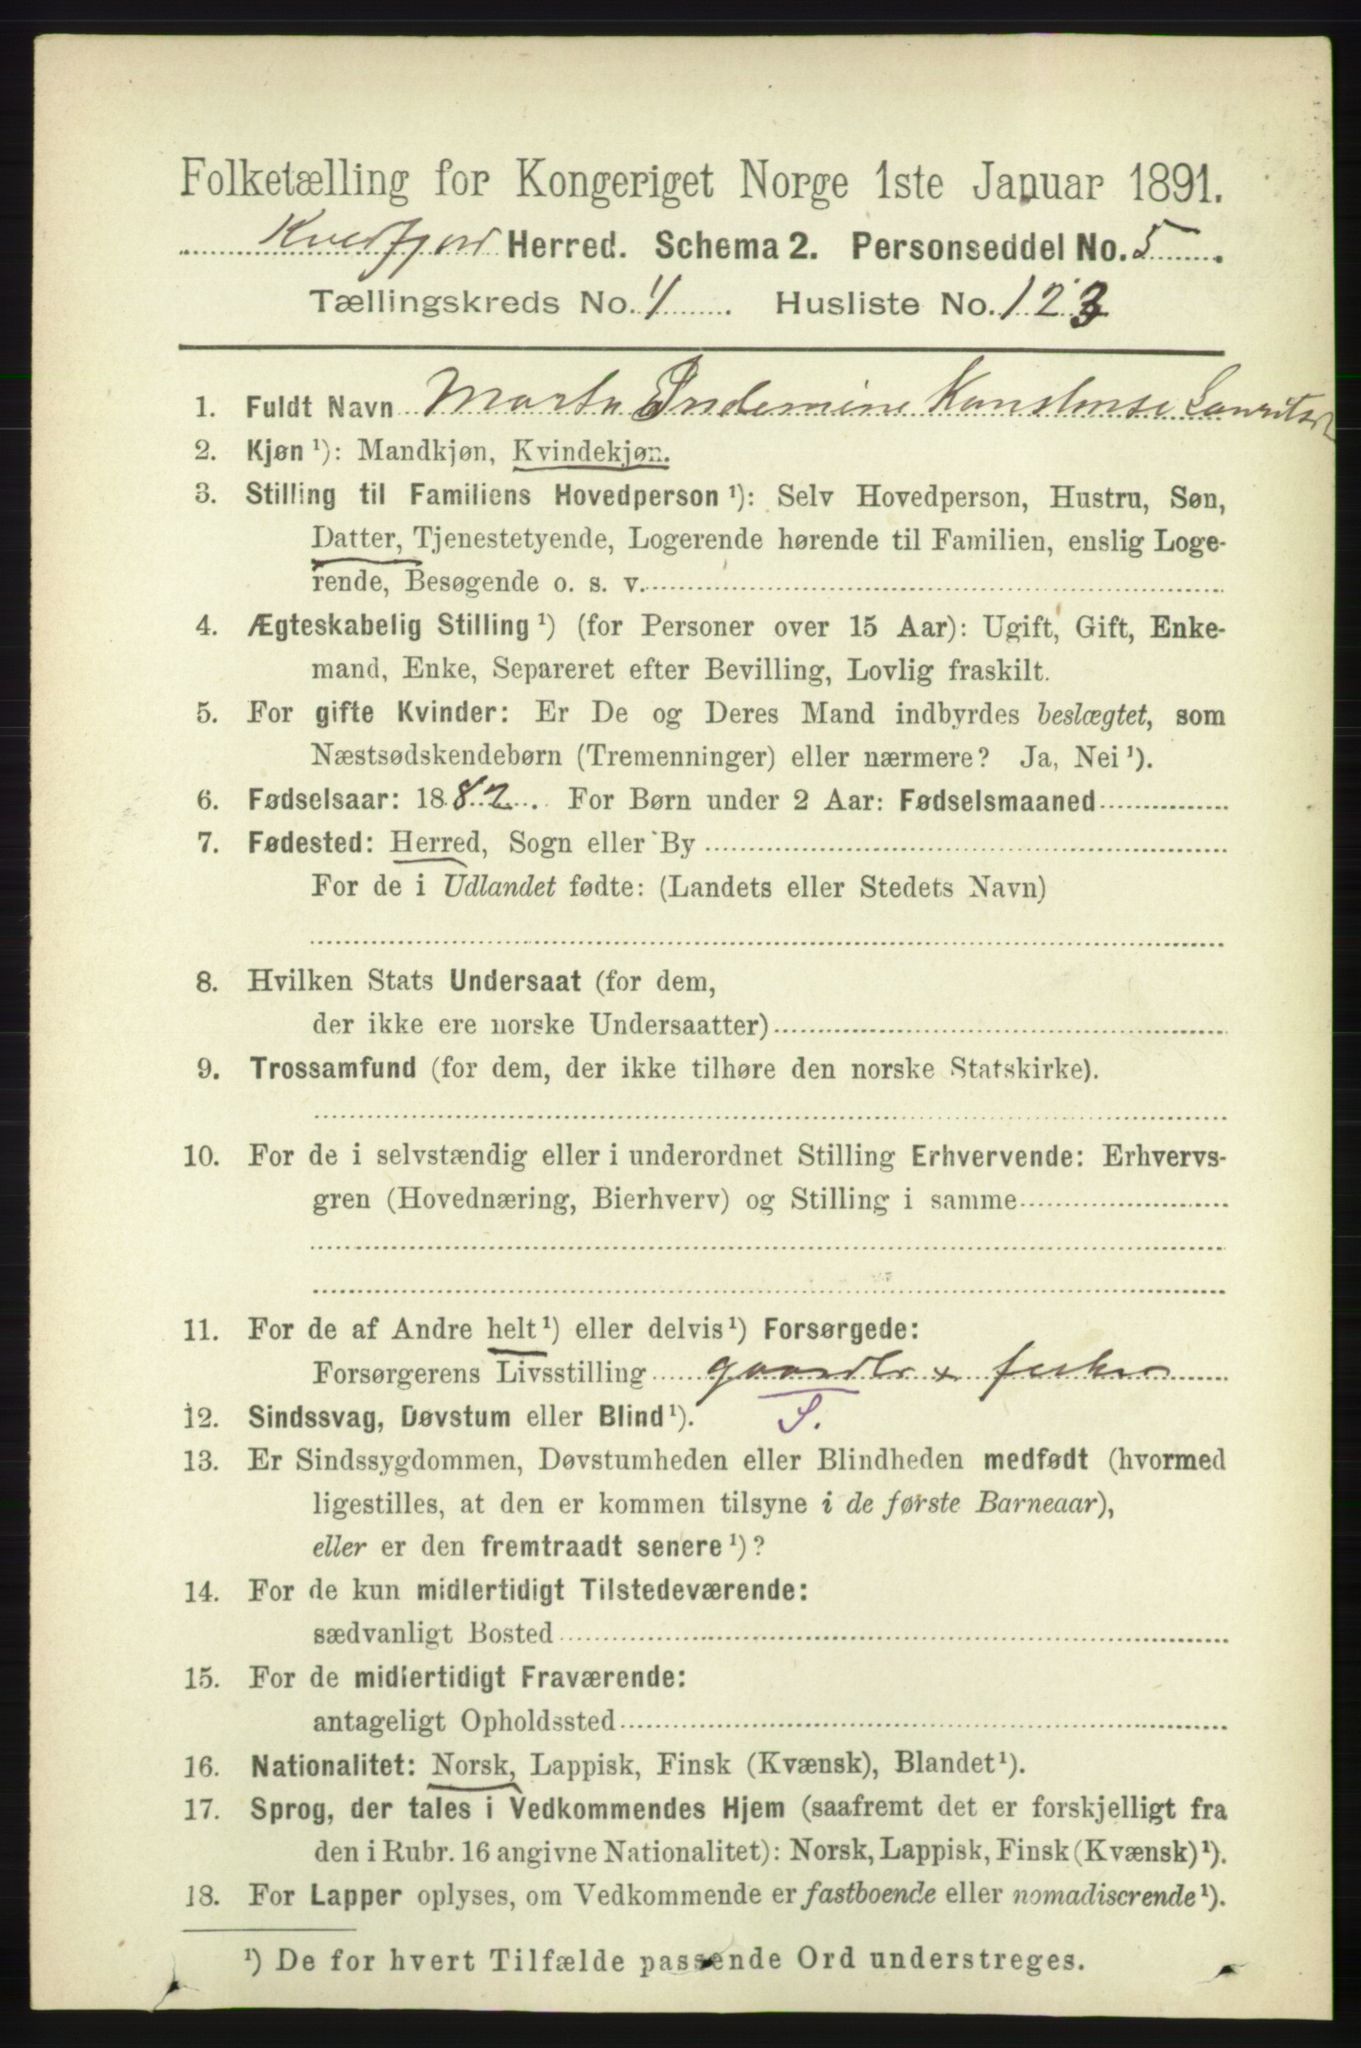 Folketælling for Kongeriget Norge 1ste Januar 1891.
Kvedfjord Herred. Schema 2. Personseddel No. 5
Tællingskreds No. 4 Husliste No. 123
1. Fuldt Navn Marta Indemine Konstanse Lauritsd
2. Kjøn ¹): Mandkjøn, Kvindekjøn.
3. Stilling til Familiens Hovedperson ¹): Selv Hovedperson, Hustru, Søn,
Datter, Tjenestetyende, Logerende hørende til Familien, enslig Loge-
rende, Besøgende o. s. v.
4. Ægteskabelig Stilling ¹) (for Personer over 15 Aar): Ugift, Gift, Enke-
mand, Enke, Separeret efter Bevilling, Lovlig fraskilt.
5. For gifte Kvinder: Er De og Deres Mand indbyrdes beslægtet, som
Næstsødskendebørn (Tremenninger) eller nærmere? Ja, Nei ¹).
6. Fødselsaar: 1882. For Børn under 2 Aar: Fødselsmaaned
7. Fødested: Herred, Sogn eller By
For de i Udlandet fødte: (Landets eller Stedets Navn)
8. Hvilken Stats Undersaat (for dem,
der ikke ere norske Undersaatter)
9. Trossamfund (for dem, der ikke tilhøre den norske Statskirke).
10. For de i selvstændig eller i underordnet Stilling Erhvervende: Erhvervs-
gren (Hovednæring, Bierhverv) og Stilling i samme
11. For de af Andre helt ¹) eller delvis ¹) Forsørgede:
Forsørgerens Livsstilling gaardbr x fisker
12. Sindssvag, Døvstum eller Blind ¹). S.
13. Er Sindssygdommen, Døvstumheden eller Blindheden medfødt (hvormed
ligestilles, at den er kommen tilsyne i de første Barneaar),
eller er den fremtraadt senere ¹)?
14. For de kun midlertidigt Tilstedeværende:
sædvanligt Bosted
15. For de midlertidigt Fraværende:
antageligt Opholdssted
16. Nationalitet: Norsk, Lappisk, Finsk (Kvænsk), Blandet ¹).
17. Sprog, der tales i Vedkommendes Hjem (saafremt det er forskjelligt fra
den i Rubr. 16 angivne Nationalitet): Norsk, Lappisk, Finsk (Kvænsk) ¹).
18. For Lapper oplyses, om Vedkommende er fastboende eller nomadiserende ¹).
¹) De for hvert Tilfælde passende Ord understreges.